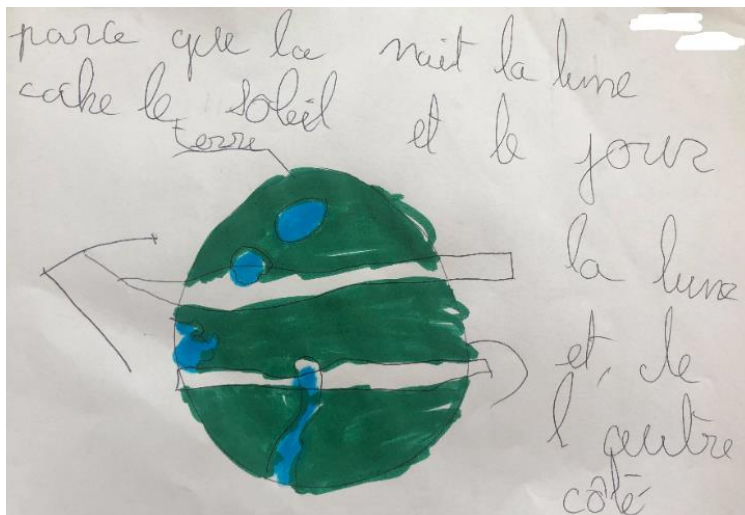 parce que la nuit la lune
cache le soleil et le jour
la lune
et, de
l autre
côté
terre